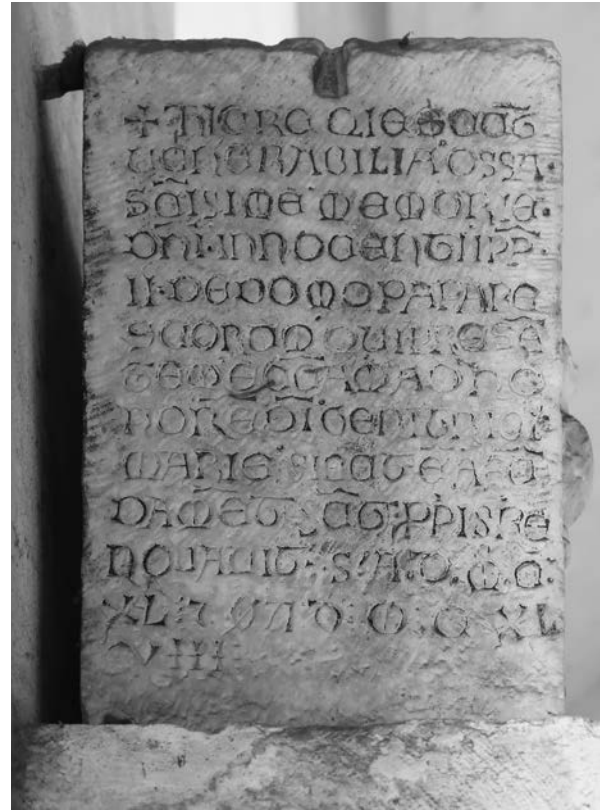 + HIC REQIESCUT
VENERABILIA OSSA·
SCISIME MEMORIE·
DNI·INNOCENTII PP
II·DE DOMO PAPARE
SCOROM QUI PRESE
TEM ECCAM AD HO
NORE DI GENITRICI
MARIE SICUT E A FU
DAMET PPIS RE
NOVAVIT: S: A: D: M: C:
XL: 7 A D: M: C XL
VIII